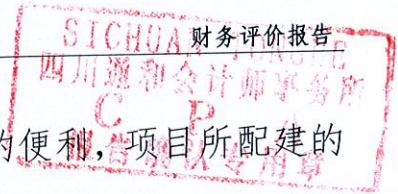 财务评价报告
SICHUAN
四川通和会计师事务所
C P
的便利，项目所配建的